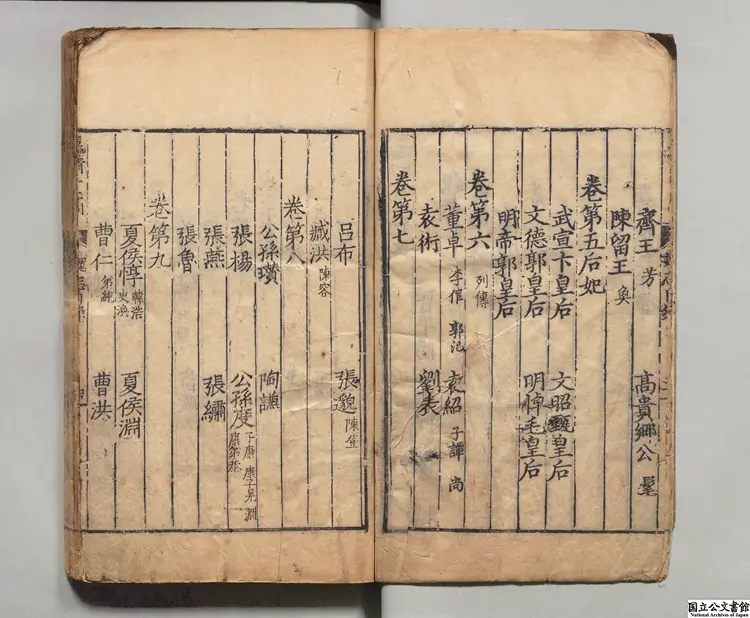 齊王 芳 高貴鄉公 髦
陳留王 奐
卷第五后妃
武宣卞皇后 文昭甄皇后
文德郭皇后 明悼毛皇后
明帝郭皇后
卷第六 列傳
董卓 李傕 郭汜 袁紹 子譚 尚
袁術 劉表
卷第七
呂布 張邈 陳登
臧洪 陳容
卷第八
公孫瓚 陶謙
張楊 公孫度 子康 康弟恭 康子晃 淵
張燕 張繡
張魯
卷第九
夏侯惇 韓浩 史渙 夏侯淵
曹仁 弟純 曹洪
国立公文書館
National Archives of Japan